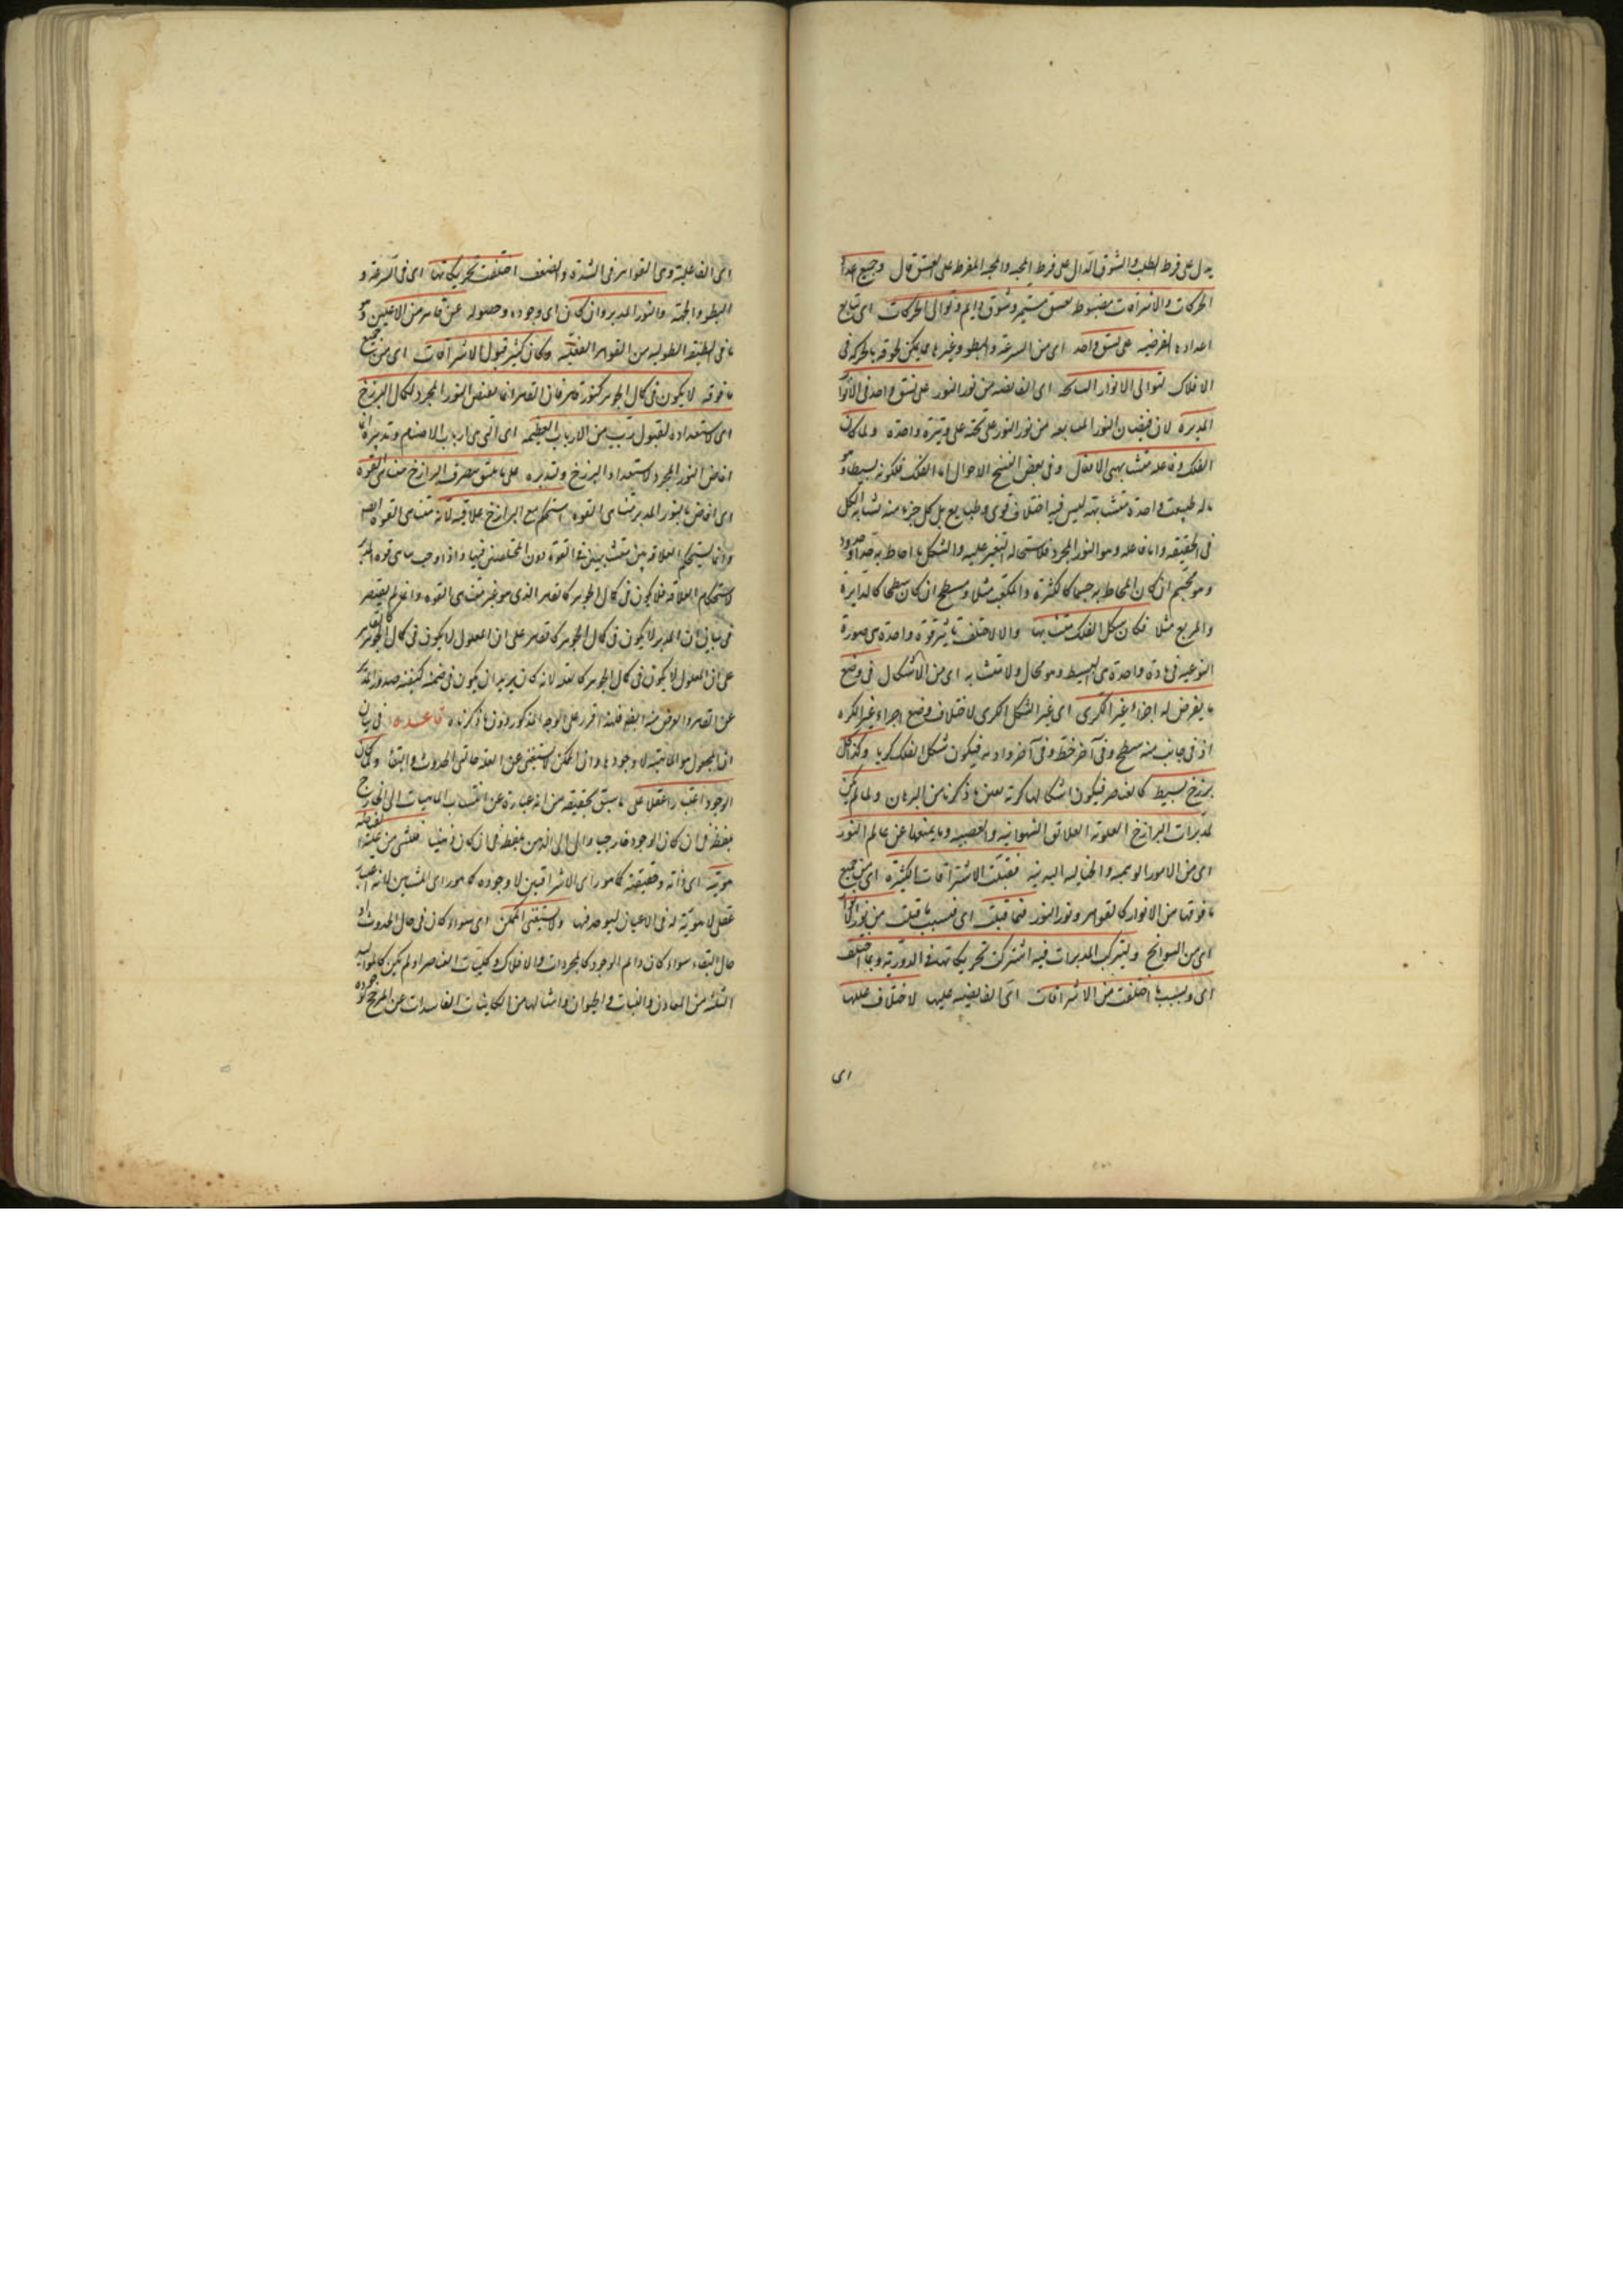 يدل على فرط الطلب والشوق الدال على فرط المحبة والمحبة المفرطة على العشق قال وجميع اعداد
الحركات والاشراقات مضبوط بعشق مستمر وشوق دايم وتوالى الحركات اى تتابع
اعداده الغرضيه على نسق واحد اى من السرعة والبطو وغيرها مما يمكن لحوقه بالحركة فى
الافلاك لتوالى الانوار السانحه اى الفائضه من نور النور على نسق واحد فى الانوار
المدبره لان فيضان النور من نور النور على تحته على وتيرة واحدة ولما كان
الفلك وفاعله متشابهى الافعال وفى بعض النسخ الاحوال اما الفلك فلكونه بسيطا وهو
ماله طبيعة واحدة متشابهة ليس فيه اختلاف قوى وطبايع بل كل جزء منه تشابه الكل
فى الحقيقه واما فاعله وهو النور المجرد فلاستحالة التغير عليه والشكل ما احاط به حد او حدود
وهو مجسم ان كان المحاط به جسما كالكثرة والمكعب مثلا ومسطح ان كان سطحا كالدايرة
والمربع مثلا فكان شكل الفلك متشابها والا لاختلفت تاثير قوة واحدة هى صورة
النوعيه فى مادة واحدة هى البسيط وهو محال ولا متشابه اى من الاشكال فى وضع
ما يفرض له اجزاء غير الكرى اى غير الشكل الكرى لاختلاف وضع اجزاء غير الكره
اذ فى جانب منه سطح وفى آخر خط وفى آخر زاويه فيكون شكل الفلك كريا وكذا كل
برزخ بسيط كالعناصر فيكون اشكالها كرية بعين ما ذكرنا من البرهان ولما لم يكن
لمدبرات البرازخ العلوية العلائق الشهوانيه والغضبيه وما يمنعها عن عالم النور
اى من الامور الوهميه والخياليه البدنية فقبلت الاشراقات الكثيرة اى من جميع
ما فوقها من الانوار كالقواهر ونور النور فبما قبلت اى فبسبب ما قبلت من نور الانوار
اى من السوانح ويشترك المدبرات فيه اشتركت تحريكاتها فى الدورية وبما اختلف
اى وبسبب ما اختلفت من الاشراقات اى الفايضه عليها لاختلاف عللها
اى
اى الفاعلية وهى القواهر فى الشدة والضعف اختلفت تحريكاتها اى فى السرعة و
البطو والجهة والنور المدبر وان كان اى وجوده وحصوله عن قاهر من الاعلين وهو
ما فى الطبقة الطوليه من القواهر العقلية وكان كثير قبول الاشراقات اى من جميع
ما فوقه لا يكون فى كمال الجوهر كنور قاهر فان القاهر انما يفيض النور المجرد لكمال البرزخ
اى لاستعداده لقبول من الارباب العظيمه اى التى هى ارباب الاصنام وتدبيره
افاض النور المجرد لاستعداد البرزخ وتدبيره على ما يليق بتصرف البرازخ متناهى القوة
اى افاض النور المدبر متناهى القوة استحكم مع البرازخ علاقته لانه متناهى القوة
وانما يستحكم العلاقه بين متشابهين فى القوة دون المختلفين فيها واذا وجب تناهى قوة المدبر
لاستحكام العلاقه فلا يكون فى كمال الجوهر كالقاهر الذى هو غير متناهى القوة وانما لم يقتصر
فى بيان ان المدبر لا يكون فى كمال الجوهر كالقاهر على ان المعلول لا يكون فى كمال الجوهر
على ان المعلول لا يكون فى كمال الجوهر كالعلة لانه كان يريد ان يكون فى ضمنه كيفية صدور المدبر
عن القاهر والغرض منه ايضا فلهذا قرر على الوجه المذكور دون ما ذكرناه قاعده فى بيان
ان المجعول هو الماهية لا وجودها وان الممكن لا يستغنى عن العلة حالتى الحدوث والبقاء ولما كان
الوجود اعتبارا عقليا على ما سبق تحقيقه من انه عبارة عن انتساب الماهيات الى الخارج
بلفظة فى ان كان الوجود خارجيا والى الذهن بلفظة فى ان كان ذهنيا فللشىء من علته
هويته اى ذاته وحقيقته كما هو راى الاشراقيين لا وجوده كما هو راى المشائين لانه اعتبار
عقلى لا هوية له فى الاعيان ليوجد فيها ولا يستغنى الممكن اى سواء كان فى حال الحدوث او
حال البقاء سواء كان دايم الوجود كالمجردات والافلاك وكليات العناصر او لم يكن كالمواليد
الثلثه من المعادن والنبات والحيوان وامثالها من الكاينات الفاسدات عن المرجح لوجوده